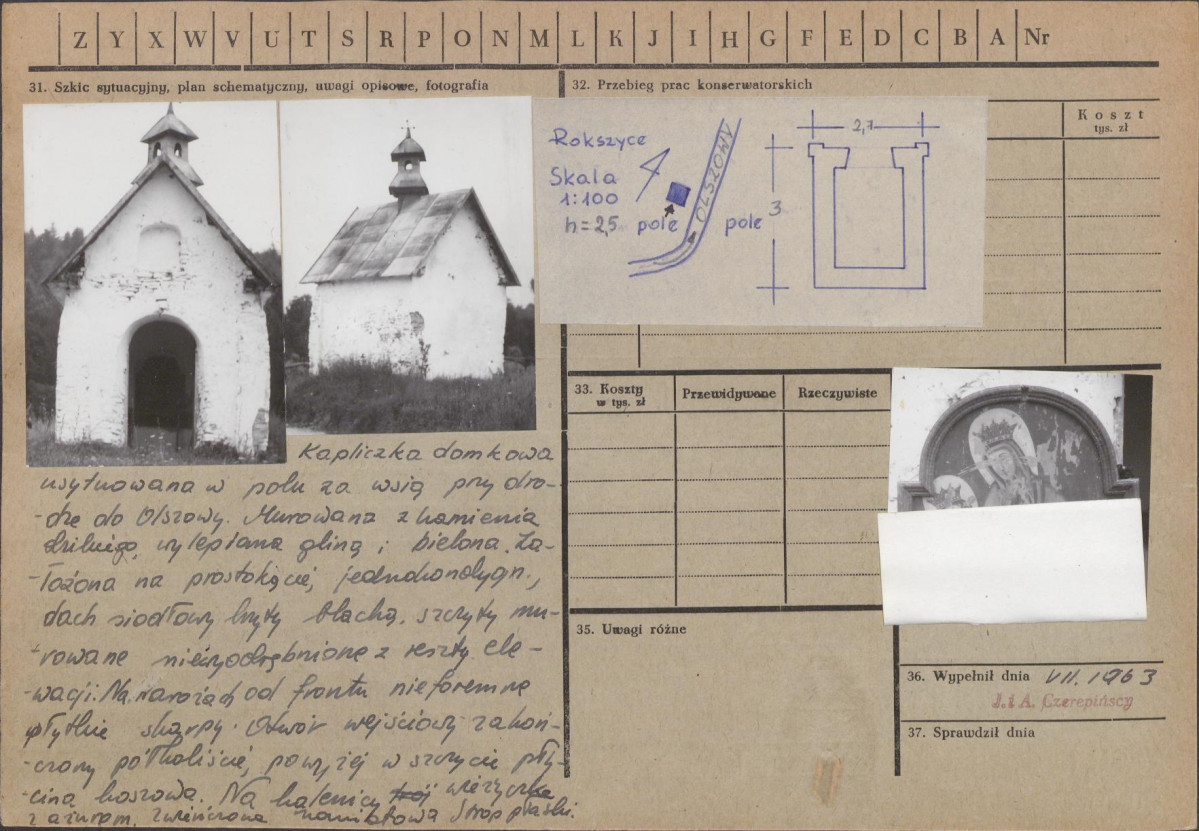 Z Y X W V U T S R P O N M L K J I H G F E D C B A Nr
31. Szkic sytuacyjny, plan schematyczny, uwagi opisowe, fotografia
32. Przebieg prac konserwatorskich
Koszt
tys. zł
Rokszyce
Skala
1:100
h = 2,5
pole
pole
OLSZOWY
2,7
3
33. Koszty
w tys. zł
Przewidywane
Rzeczywiste
Kapliczka domkowa
usytuowana w polu za wsią przy dro-
-dze do Olszowy. Murowana z kamienia
dzikiego, wylepiana gliną i bielona. Za-
-łożona na prostokącie, jednokondygn.,
dach siodłowy kryty blachą, szczyty mu-
-rowane niewyodrębnione z reszty ele-
-wacji. Na narożach od frontu nieforemne
płytkie skarpy. Otwór wejściowy zakoń-
-czony półkoliście, powyżej w szczycie pły-
cina koszowa. Na kalenicy wieżyczka
z ażurem, zwieńczona namiotowo. Strop płaski.
35. Uwagi różne
36. Wypełnił dnia VII. 1963
J. i A. Czerepińscy
37. Sprawdził dnia